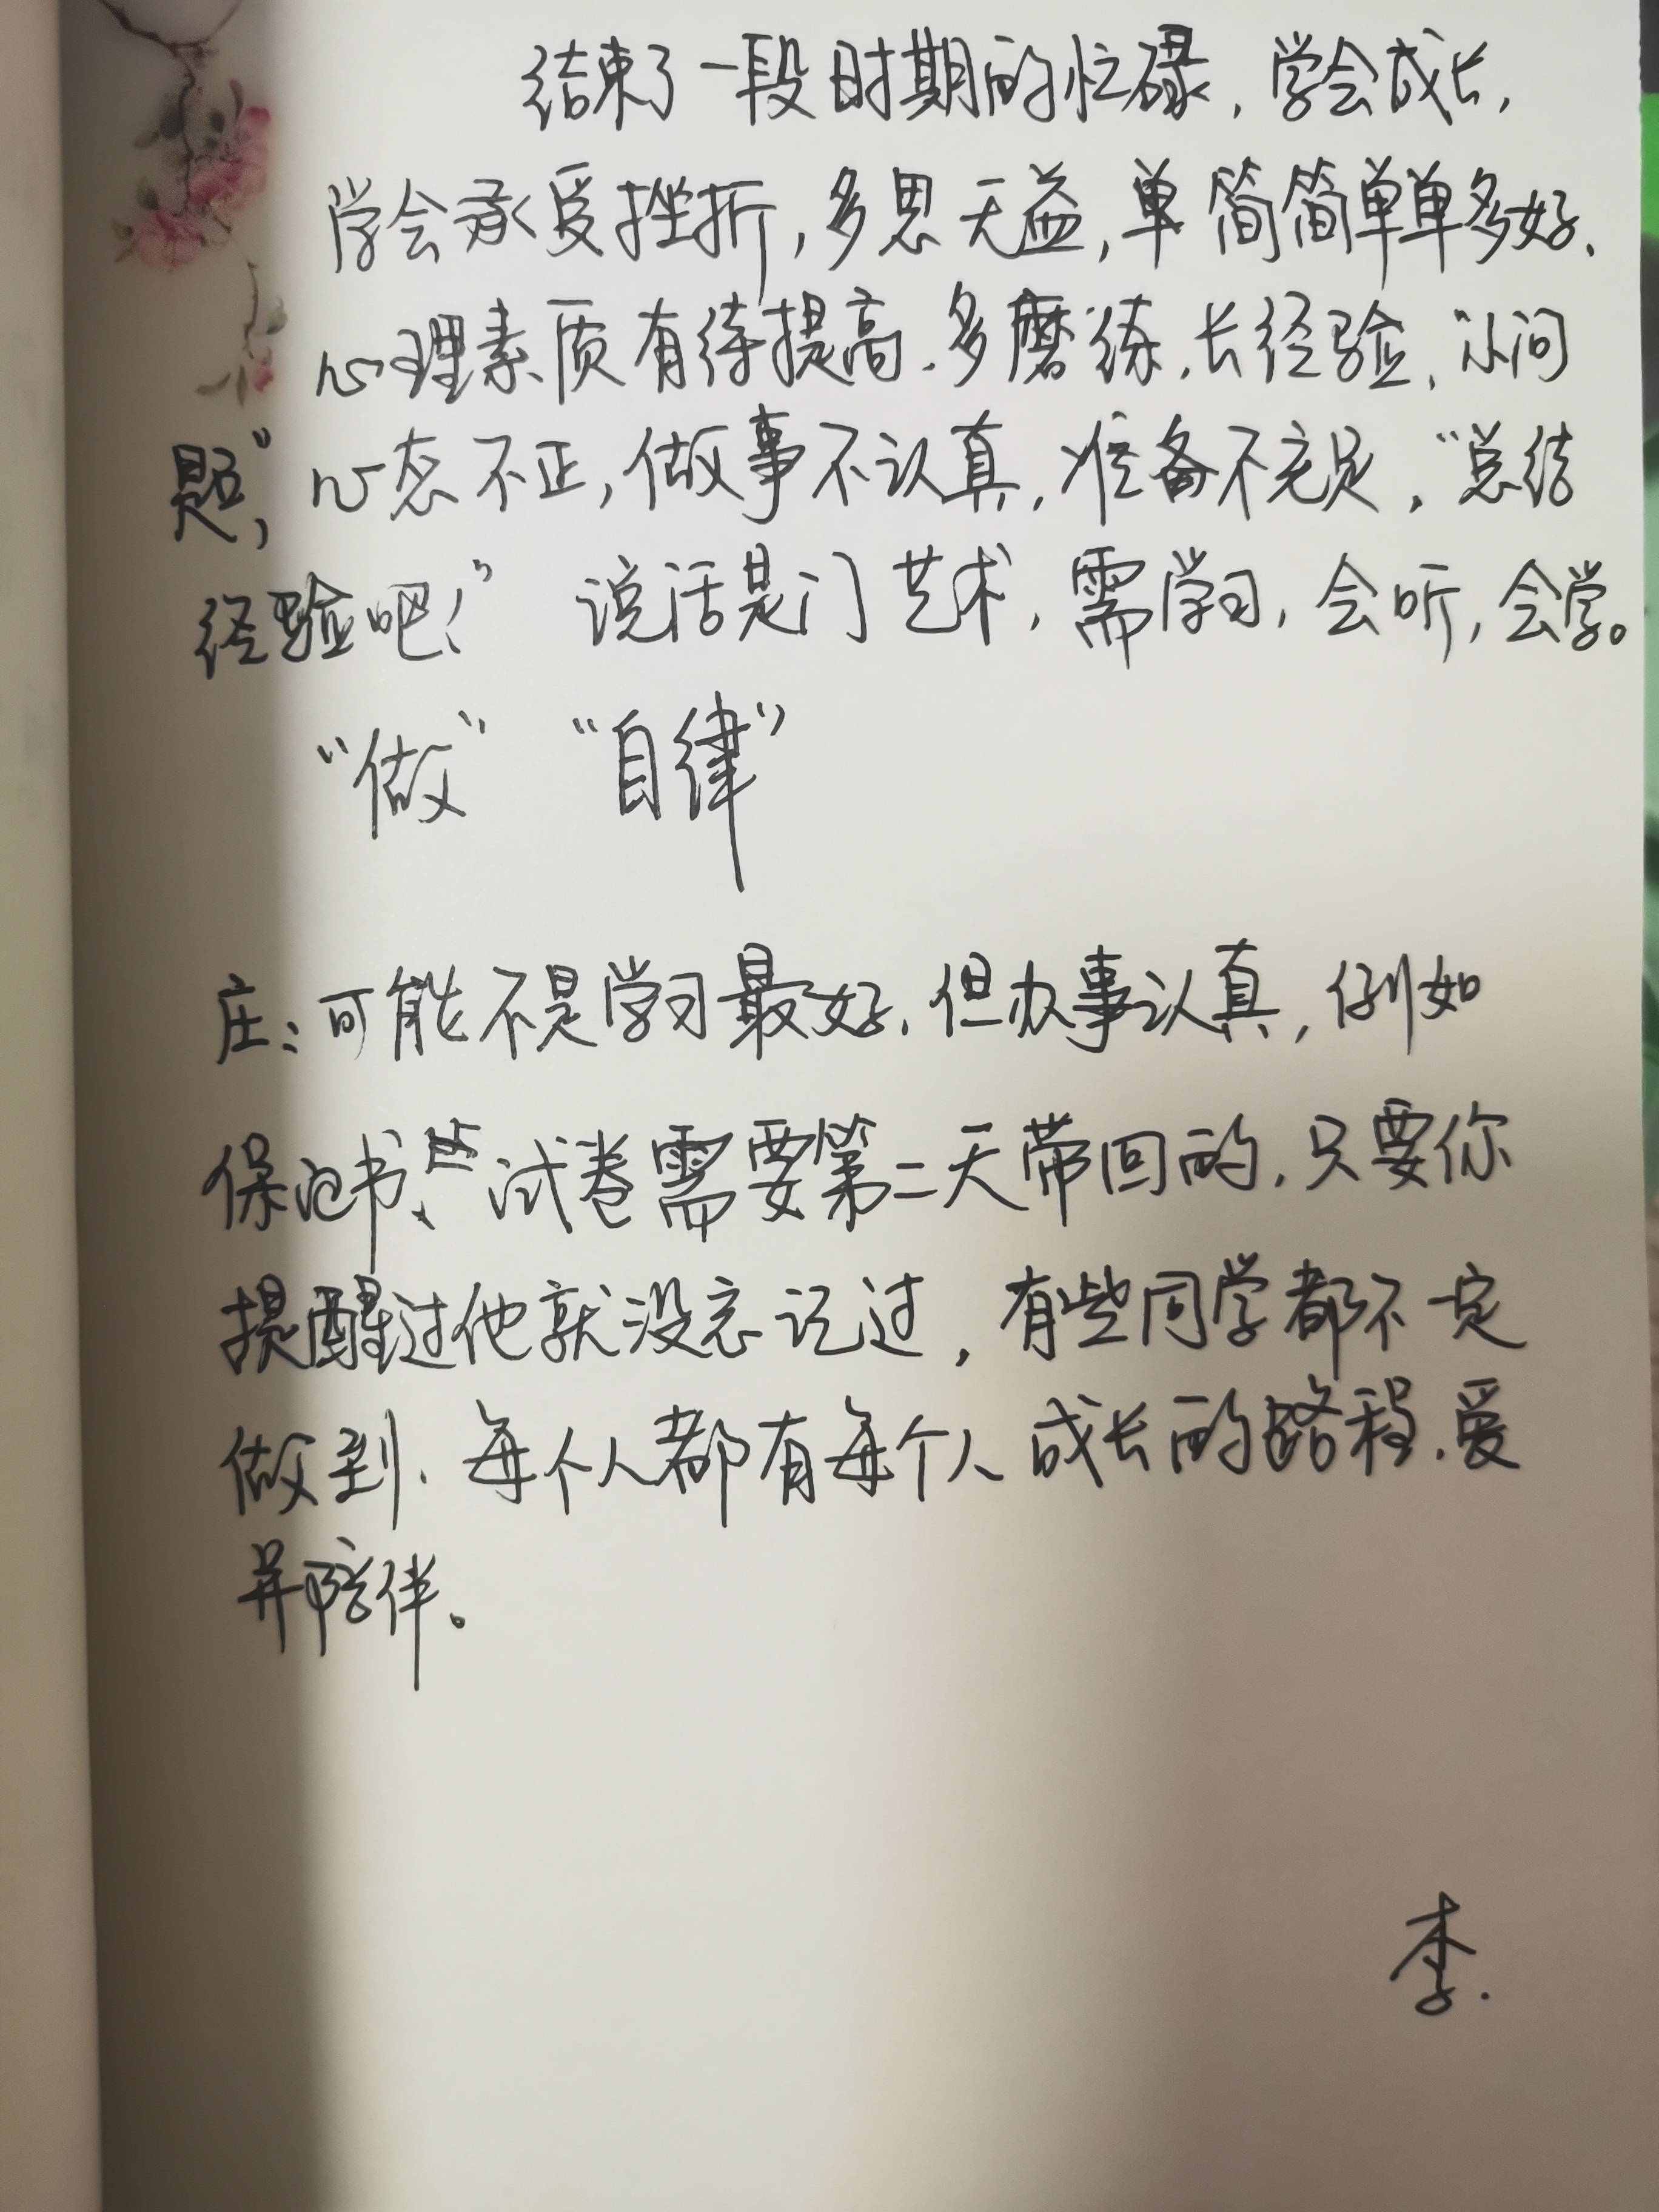 结束了一段时期的忙碌，学会成长，
学会承受挫折，多思无益，单简简单单多好、
心理素质有待提高.多磨练.长经验，“问
题”，心态不正，做事不认真，准备不充足，“总结
经验吧！” 说话是门艺术，需学习，会听，会学。
“做” “自律”
庄：可能不是学习最好.但办事认真，例如
保证书、试卷需要第二天带回的.只要你
提醒过他就没忘记过，有些同学都不一定
做到.每个人都有每个人成长的路程.爱
并陪伴。
李.